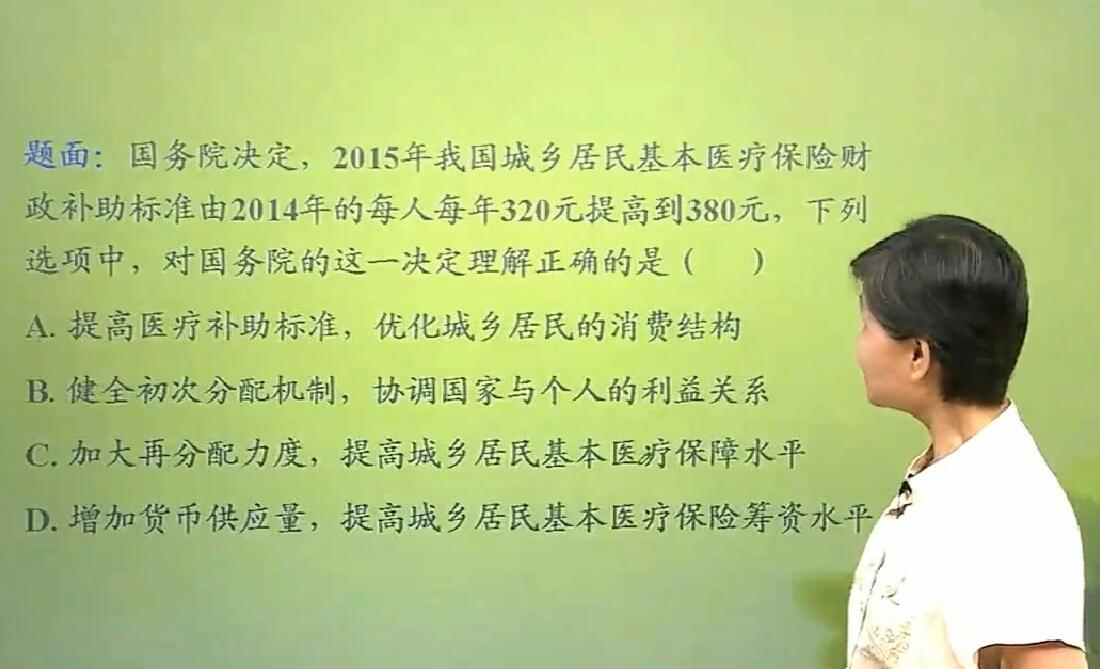 题面：国务院决定，2015年我国城乡居民基本医疗保险财
政补助标准由2014年的每人每年320元提高到380元，下列
选项中，对国务院的这一决定理解正确的是（ ）
A. 提高医疗补助标准，优化城乡居民的消费结构
B. 健全初次分配机制，协调国家与个人的利益关系
C. 加大再分配力度，提高城乡居民基本医疗保障水平
D. 增加货币供应量，提高城乡居民基本医疗保险筹资水平